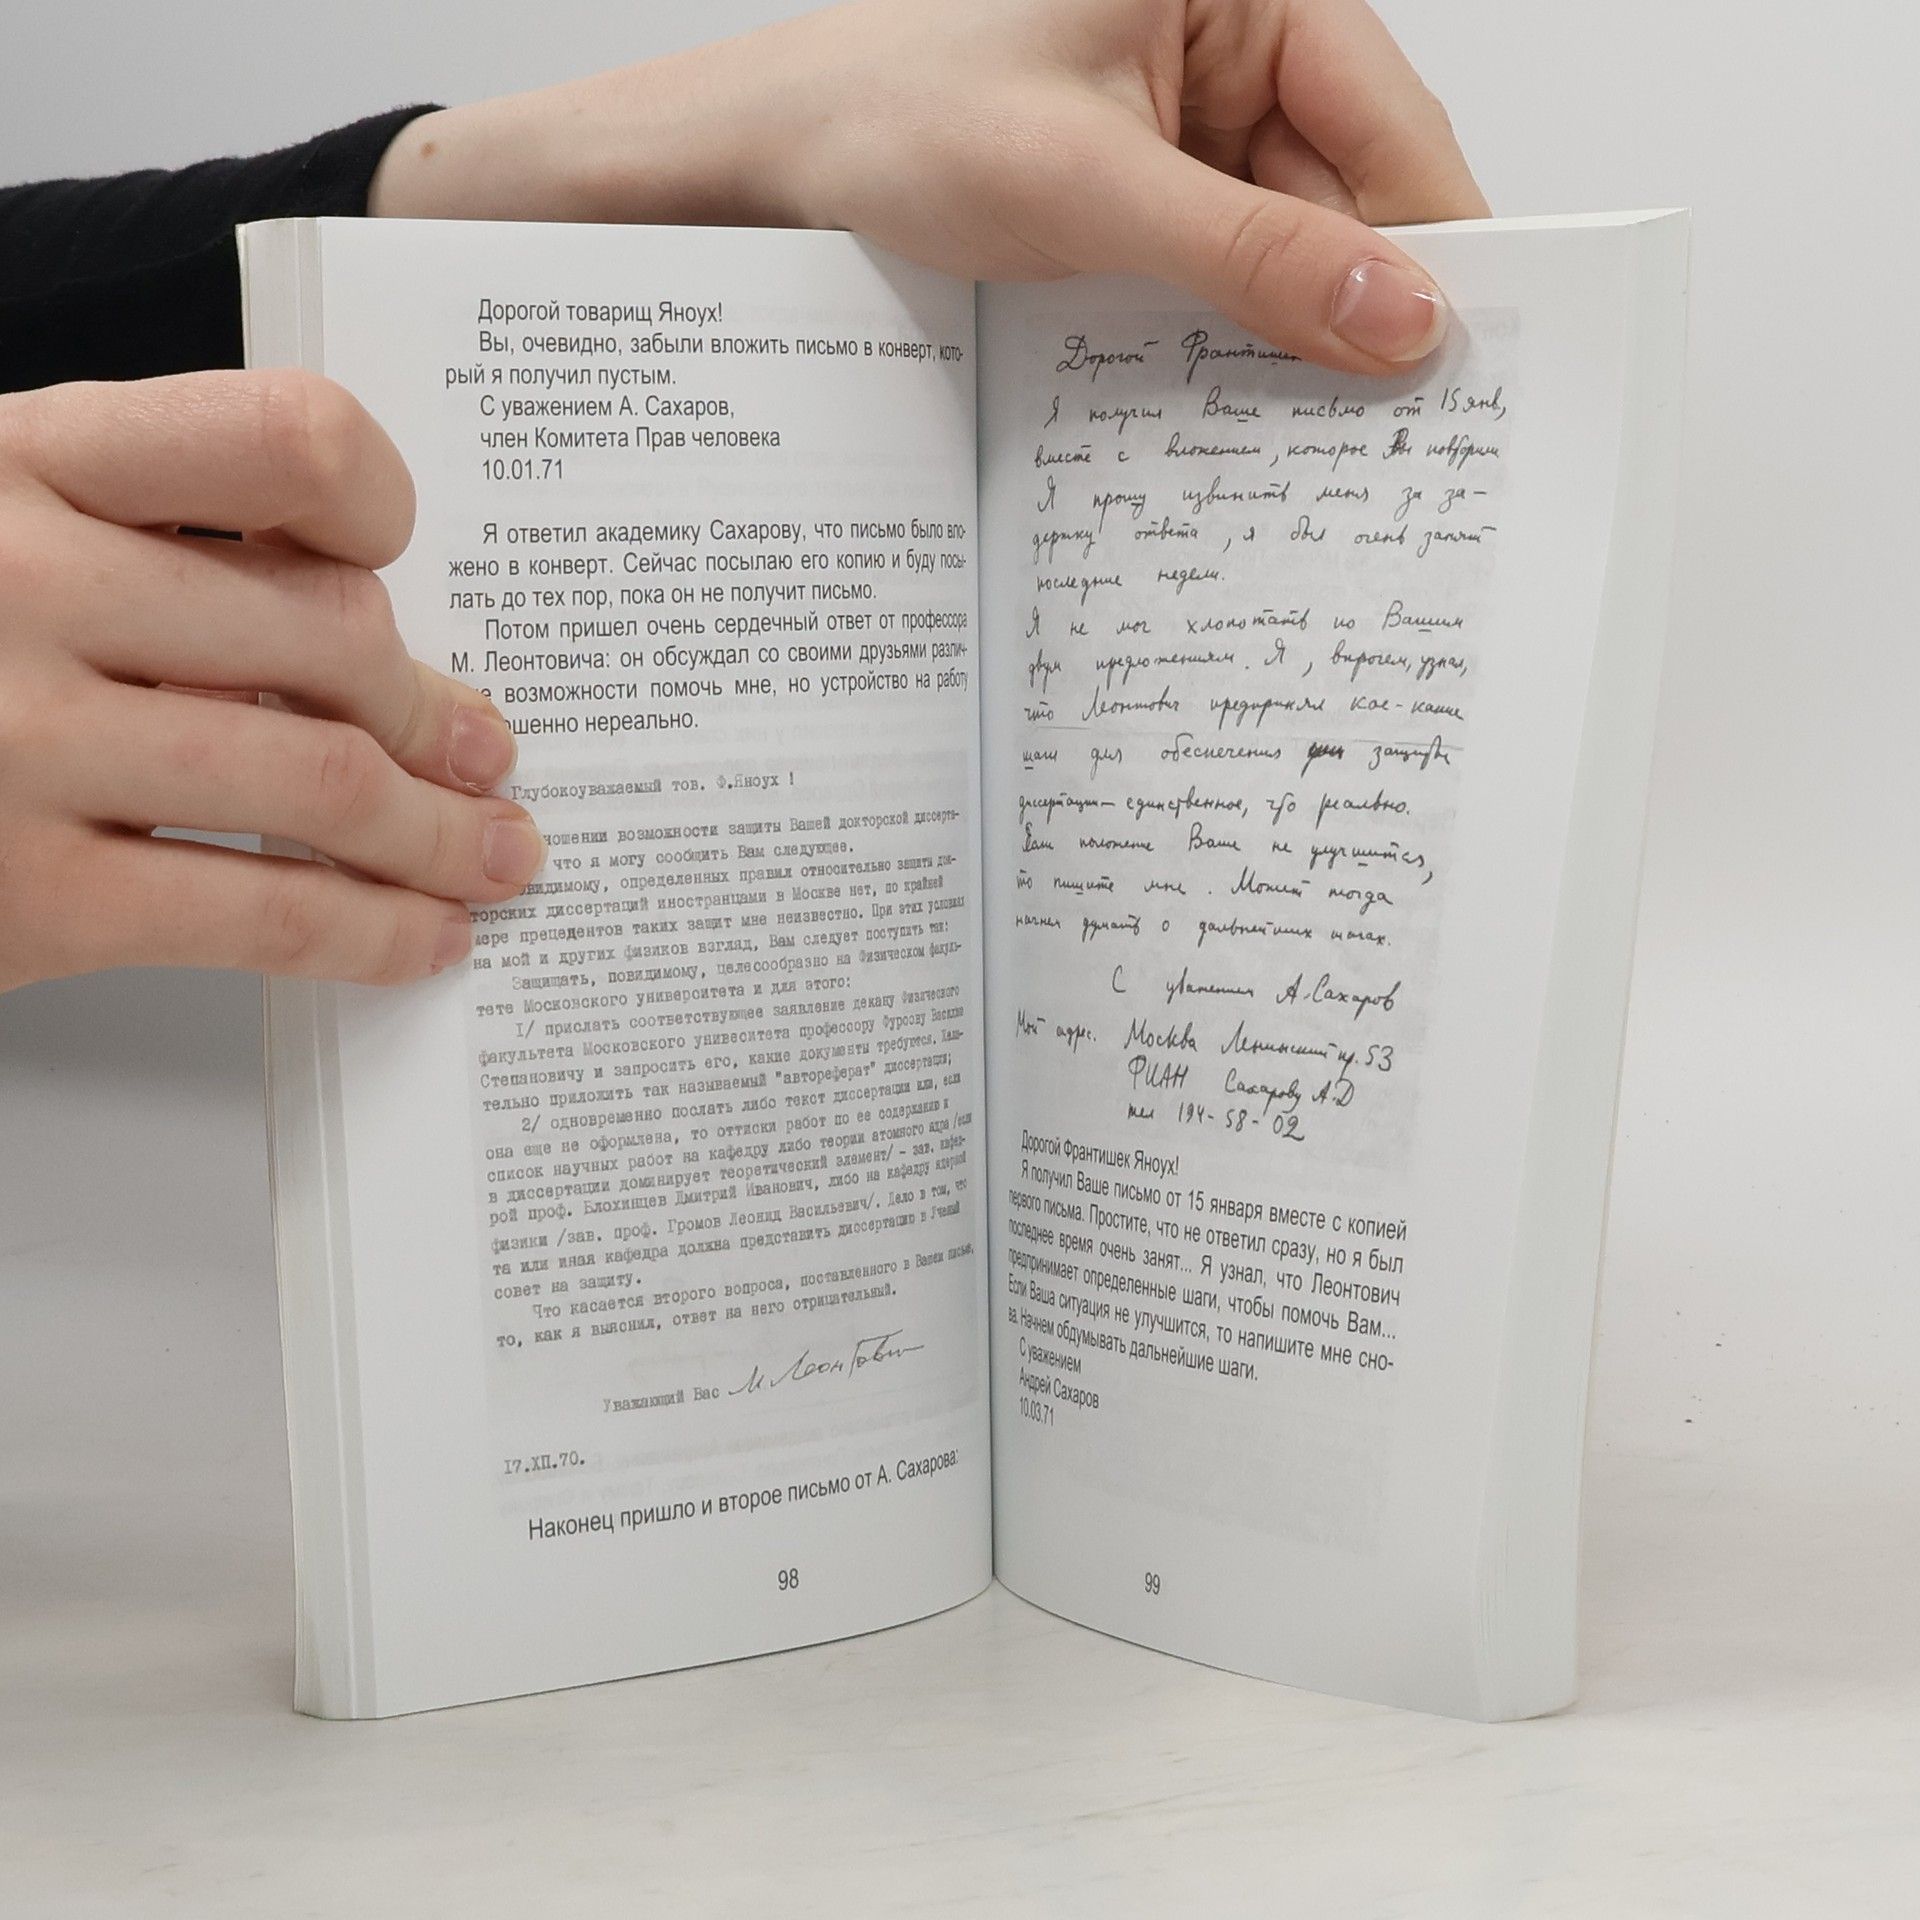 Дорогой товарищ Яноух!
Вы, очевидно, забыли вложить письмо в конверт, кото-
рый я получил пустым.
С уважением А. Сахаров,
член Комитета Прав человека
10.01.71
Я ответил академику Сахарову, что письмо было вло-
жено в конверт. Сейчас посылаю его копию и буду посы-
лать до тех пор, пока он не получит письмо.
Потом пришел очень сердечный ответ от профессора
М. Леонтовича: он обсуждал со своими друзьями различ-
е возможности помочь мне, но устройство на работу
ошенно нереально.
Глубокоуважаемый тов. Ф.Яноух !
ношении возможности защиты Вашей докторской диссерта-
что я могу сообщить Вам следующее.
видимому, определенных правил относительно защиты док-
торских диссертаций иностранцами в Москве нет, по крайней
мере прецедентов таких защит мне неизвестно. При этих условиях
на мой и других физиков взгляд, Вам следует поступить так:
Защищать, повидимому, целесообразно на Физическом факуль-
тете Московского университета и для этого:
I/ прислать соответствующее заявление декану Физического
факультета Московского унивеситета профессору Фурсову Василию
Степановичу и запросить его, какие документы требуются. Жела-
тельно приложить так называемый "автореферат" диссертации;
2/ одновременно послать либо текст диссертации или, если
она еще не оформлена, то оттиски работ по ее содержанию и
список научных работ на кафедру либо теории атомного ядра /если
в диссертации доминирует теоретический элемент/ - зав. кафед-
рой проф. Блохинцев Дмитрий Иванович, либо на кафедру ядерной
физики /зав. проф. Громов Леонид Васильевич/. Дело в том, что
та или иная кафедра должна представить диссертацию в Ученый
совет на защиту.
Что касается второго вопроса, поставленного в Вашем письме,
то, как я выяснил, ответ на него отрицательный.
Уважающий Вас М Леонтович
I7.XII.70.
Наконец пришло и второе письмо от А. Сахарова:
98
Дорогой Франтишек
Я получил Ваше письмо от 15 янв,
вместе с вложением, которое Вы повторили
Я прошу извинить меня за за-
держку ответа, я был очень занят
последние недели.
Я не мог хлопотать по Вашим
двум предложениям. Я, впрочем, узнал,
что Леонтович предпринял кое-какие
шаги для обеспечения защиты
диссертации — единственное, что реально.
Если положение Ваше не улучшится,
то пишите мне. Может тогда
начнем думать о дальнейших шагах.
С уважением А.Сахаров
Мой адрес. Москва Ленинский пр. 53
ФИАН Сахарову А.Д
тел 194-58-02
Дорогой Франтишек Яноух!
Я получил Ваше письмо от 15 января вместе с копией
первого письма. Простите, что не ответил сразу, но я был
последнее время очень занят... Я узнал, что Леонтович
предпринимает определенные шаги, чтобы помочь Вам...
Если Ваша ситуация не улучшится, то напишите мне сно-
ва. Начнем обдумывать дальнейшие шаги.
С уважением
Андрей Сахаров
10.03.71
99